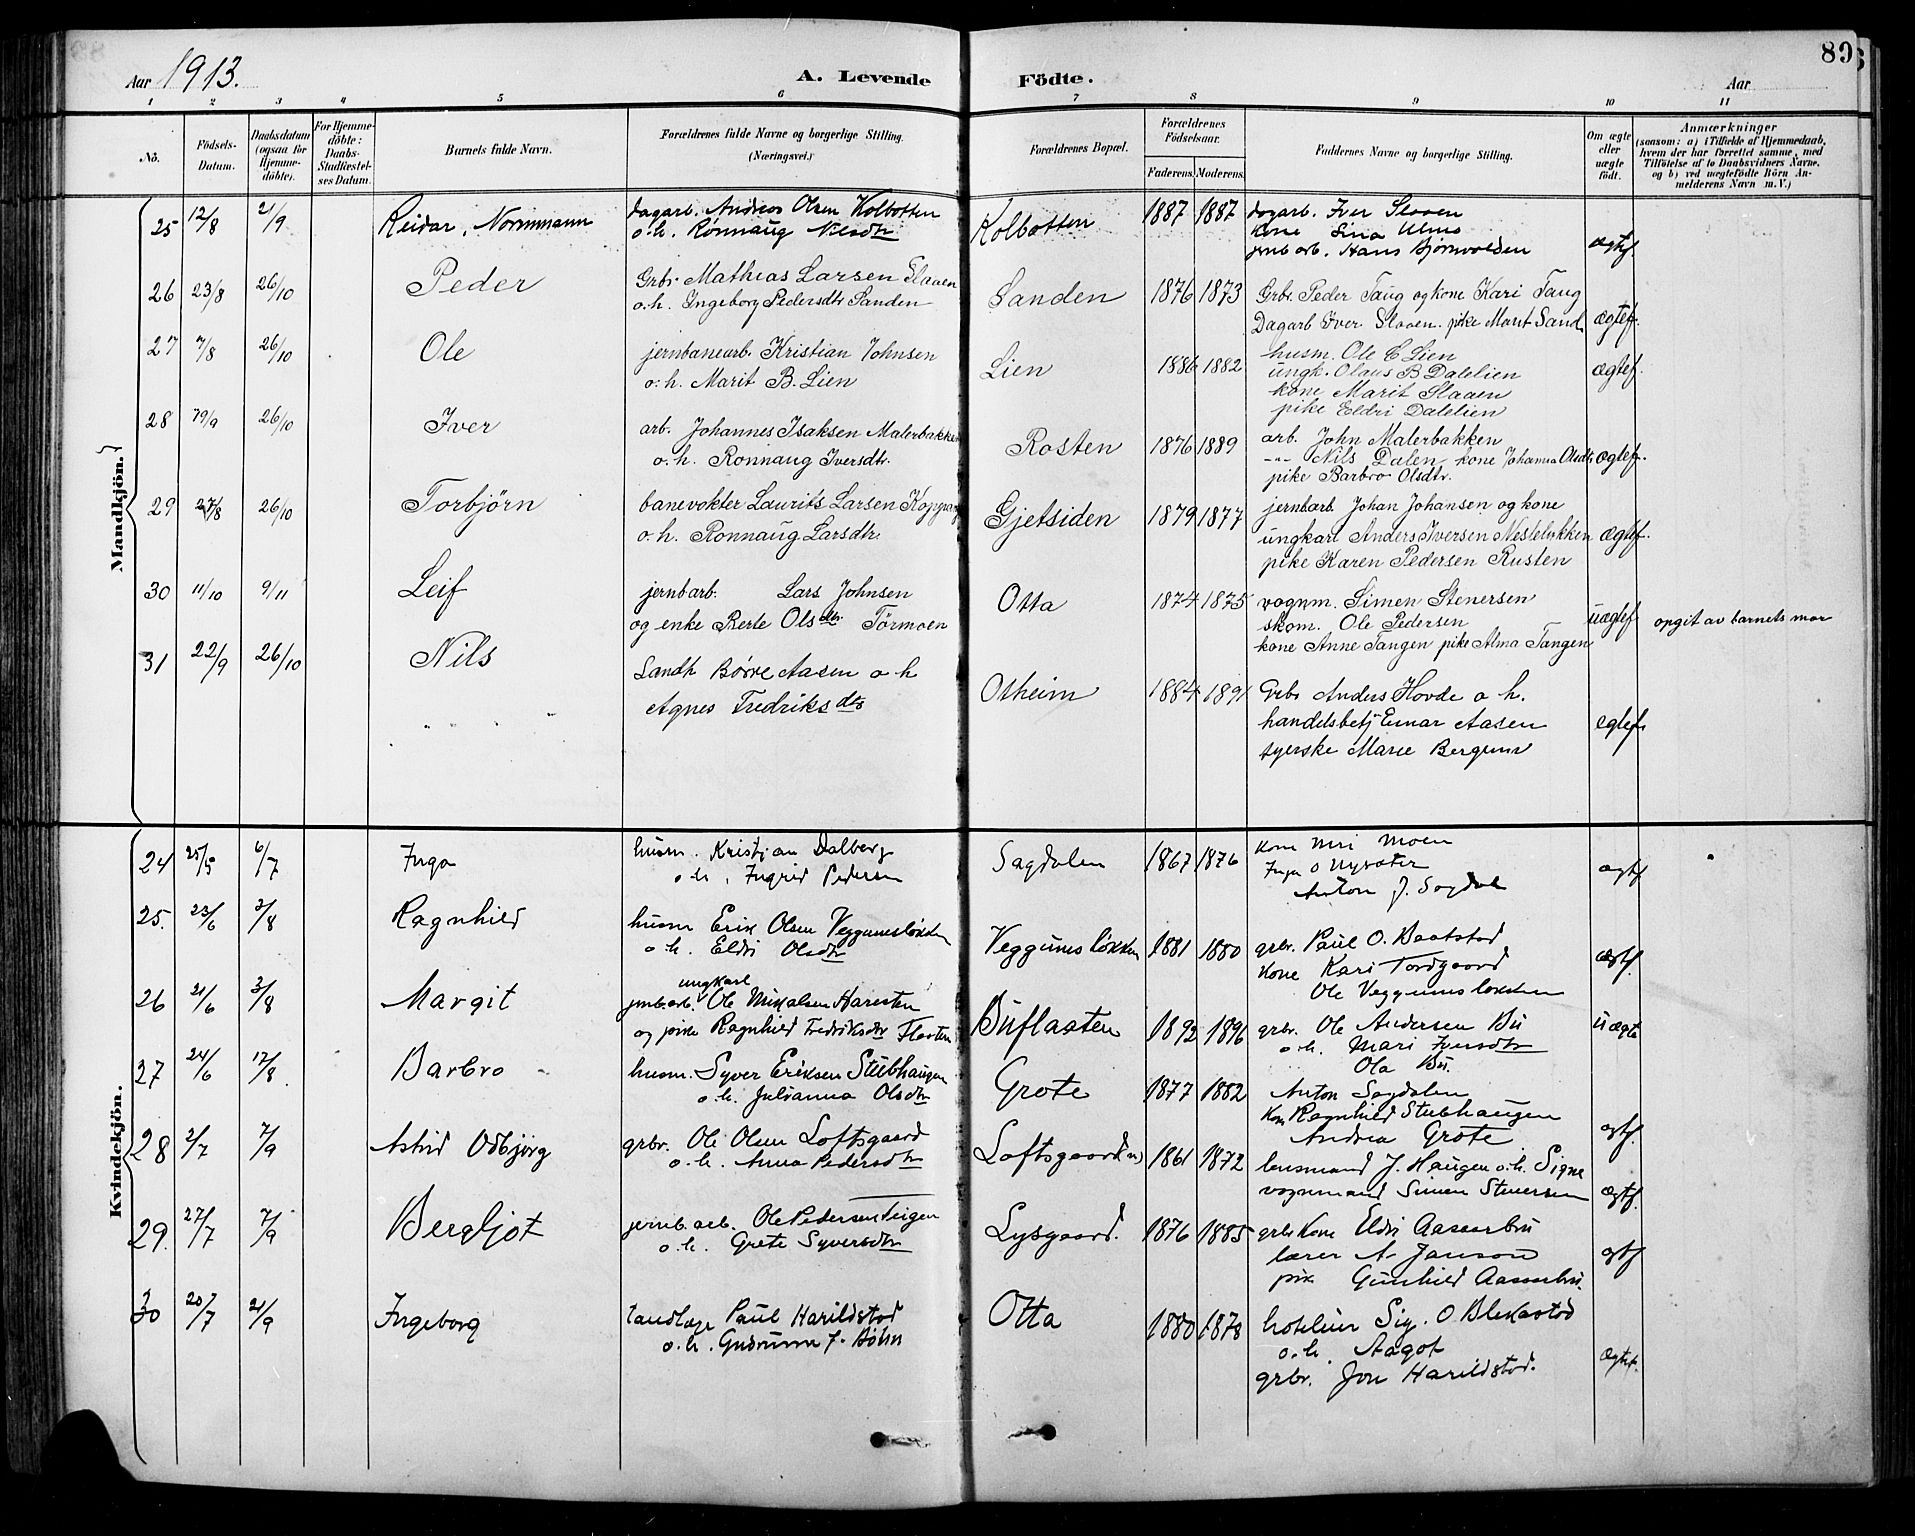 Aar 1913.
A. Levende Födte.
Aar
89
1 2 3 4 5 6 7 8 9 10 11
No.
Födsels-Datum.
Daabsdatum (ogsaa for Hjemme-döbte).
For Hjemme-döbte: Daabs-Stadfæstel-ses Datum.
Barnets fulde Navn.
Forældrenes fulde Navne og borgerlige Stilling. (Næringsvei.)
Forældrenes Bopæl.
Forældrenes Födselsaar.
Faderens. Moderens.
Faddernes Navne og borgerlige Stilling.
Om ægte eller uægte födt.
Anmærkninger
(saasom: a) i Tilfælde af Hjemmedaab,
hvem der har forrettet samme, med
Tilföielse af to Daabsvidners Navne,
og b) ved uægtefödte Börn An-
melderens Navn m. V.)
Mandkjön.
25 12/8 21/9 Reidar, Normann dagarb. Andreas Olsen Kolbotten
o.h. Rønnaug Nilsdtr
Kolbotten 1887 1887 dagarb. Iver Slaaen
kone Sina Ulmo
jernb arb. Hans Bjørnvolden
ægtf.
26 23/8 26/10 Peder Grbr. Mathias Larsen Slaaen
o.h. Ingeborg Pedersdtr Sanden
Sanden 1876 1873 Grbr. Peder Taug og kone Kari Taug
Dagarb Iver Slaaen. pike Marit Sand
ægtef.
27 7/8 26/10 Ole jernbanearb. Kristian Johnsen
o.h. Marit B. Lien
Lien 1886 1882 husm. Ole E Lien
ungk. Olaus B Dalelien
kone Marit Slaaen
pike Eldri Dalelien
ægtef.
28 19/9 26/10 Iver arb. Johannes Isaksen Malerbakken
o.h. Ronnaug Iversdtr.
Rosten 1876 1889 arb. John Malerbakken
-"- Nils Dalen kone Johanna Olsdtr
pike Barbro Olsdtr.
ægtef.
29 27/8 26/10 Torbjörn banevokter Laurits Larsen
o.h. Ronnaug Larsdtr.
Gjetsiden 1879 1877 jernbarb Johan Johansen og kone
ungkarl Anders Iversen Nesteløkken
pike Karen Pedersen Rusten
ægtef.
30 11/10 9/11 Leif jernbarb. Lars Johnsen
og enke Olsdtr Törmoen
Otta 1874 1875 vognm. Simen Stenersen
skom. Ole Pedersen
kone Anne Tangen pike Alma Tangen
uægtef opgit av barnets mor
31 22/9 26/10 Nils Landh Børre Aasen o h
Agnes Fredriksdtr
Otheim 1884 1891 Grbr Anders Hovde o h.
handelsbetj Einar Aasen
syerske Marie
egtef.
Kvindekjön.
24 25/5 6/7 Inga husm. Kristjan Dalberg
o.h. Ingrid Pedersen
Sagdalen 1867 1876 kone Mari Moen
Inga O Nysæter
Anton J. Sagdal
ægtf
25. 23/6 3/8 Ragnhild husm Erik Olsen Veggumsløkken
o.h. Eldri Olsdtr
Veggumsløkken 1881 1880 grbr. Paul O. Baatstad
kone Kari Tordgaard
Ole Veggumsløkken
ægtf.
26 21/6 3/8 Margit ungkarl
jernbarb. Ole Mikalsen Haresten
og pike Ragnhild Fredriksdtr Flaaten
Buflaaten 1892 1896 grbr. Ole Andersen Bu
o.h. Mari Iversdtr
Ola Bu.
uægte
27 24/6 17/8 Barbro husm. Syver Eriksen Stubhaugen
o.h. Julianna Olsdtr
Grote 1877 1882 Anton Sagdalen
kone Ragnhild Stubhaugen
Andrea Grote
ægtf.
28 2/7 7/9 Astrid Odbjörg grbr. Ole Olsen Loftsgaard
o.h. Anna Pedersdtr
Loftsgaard 1861 1872 lensmand J. Haugen o.h. Signe
vognmand Simen Stenersen
ægtf.
29. 27/7 7/9 Bergljot jernb arb. Ole Pedersen Teigen
o.h. Grete Syversdtr
Lysgaard. 1876 1885 grbr kone Eldri Aasaarbru
lærer A. Janson
pik Gunhild Aasaarbru.
ægtf
30 20/7 21/9 Ingeborg tandlæge Paul Harildstad
o.h. Gudrunn f. Bøhn
Otta 1880 1878 hoteleier Sig. O Blekastad
o.h. Aagot
grbr. Jon Harildstad.
ægtef.